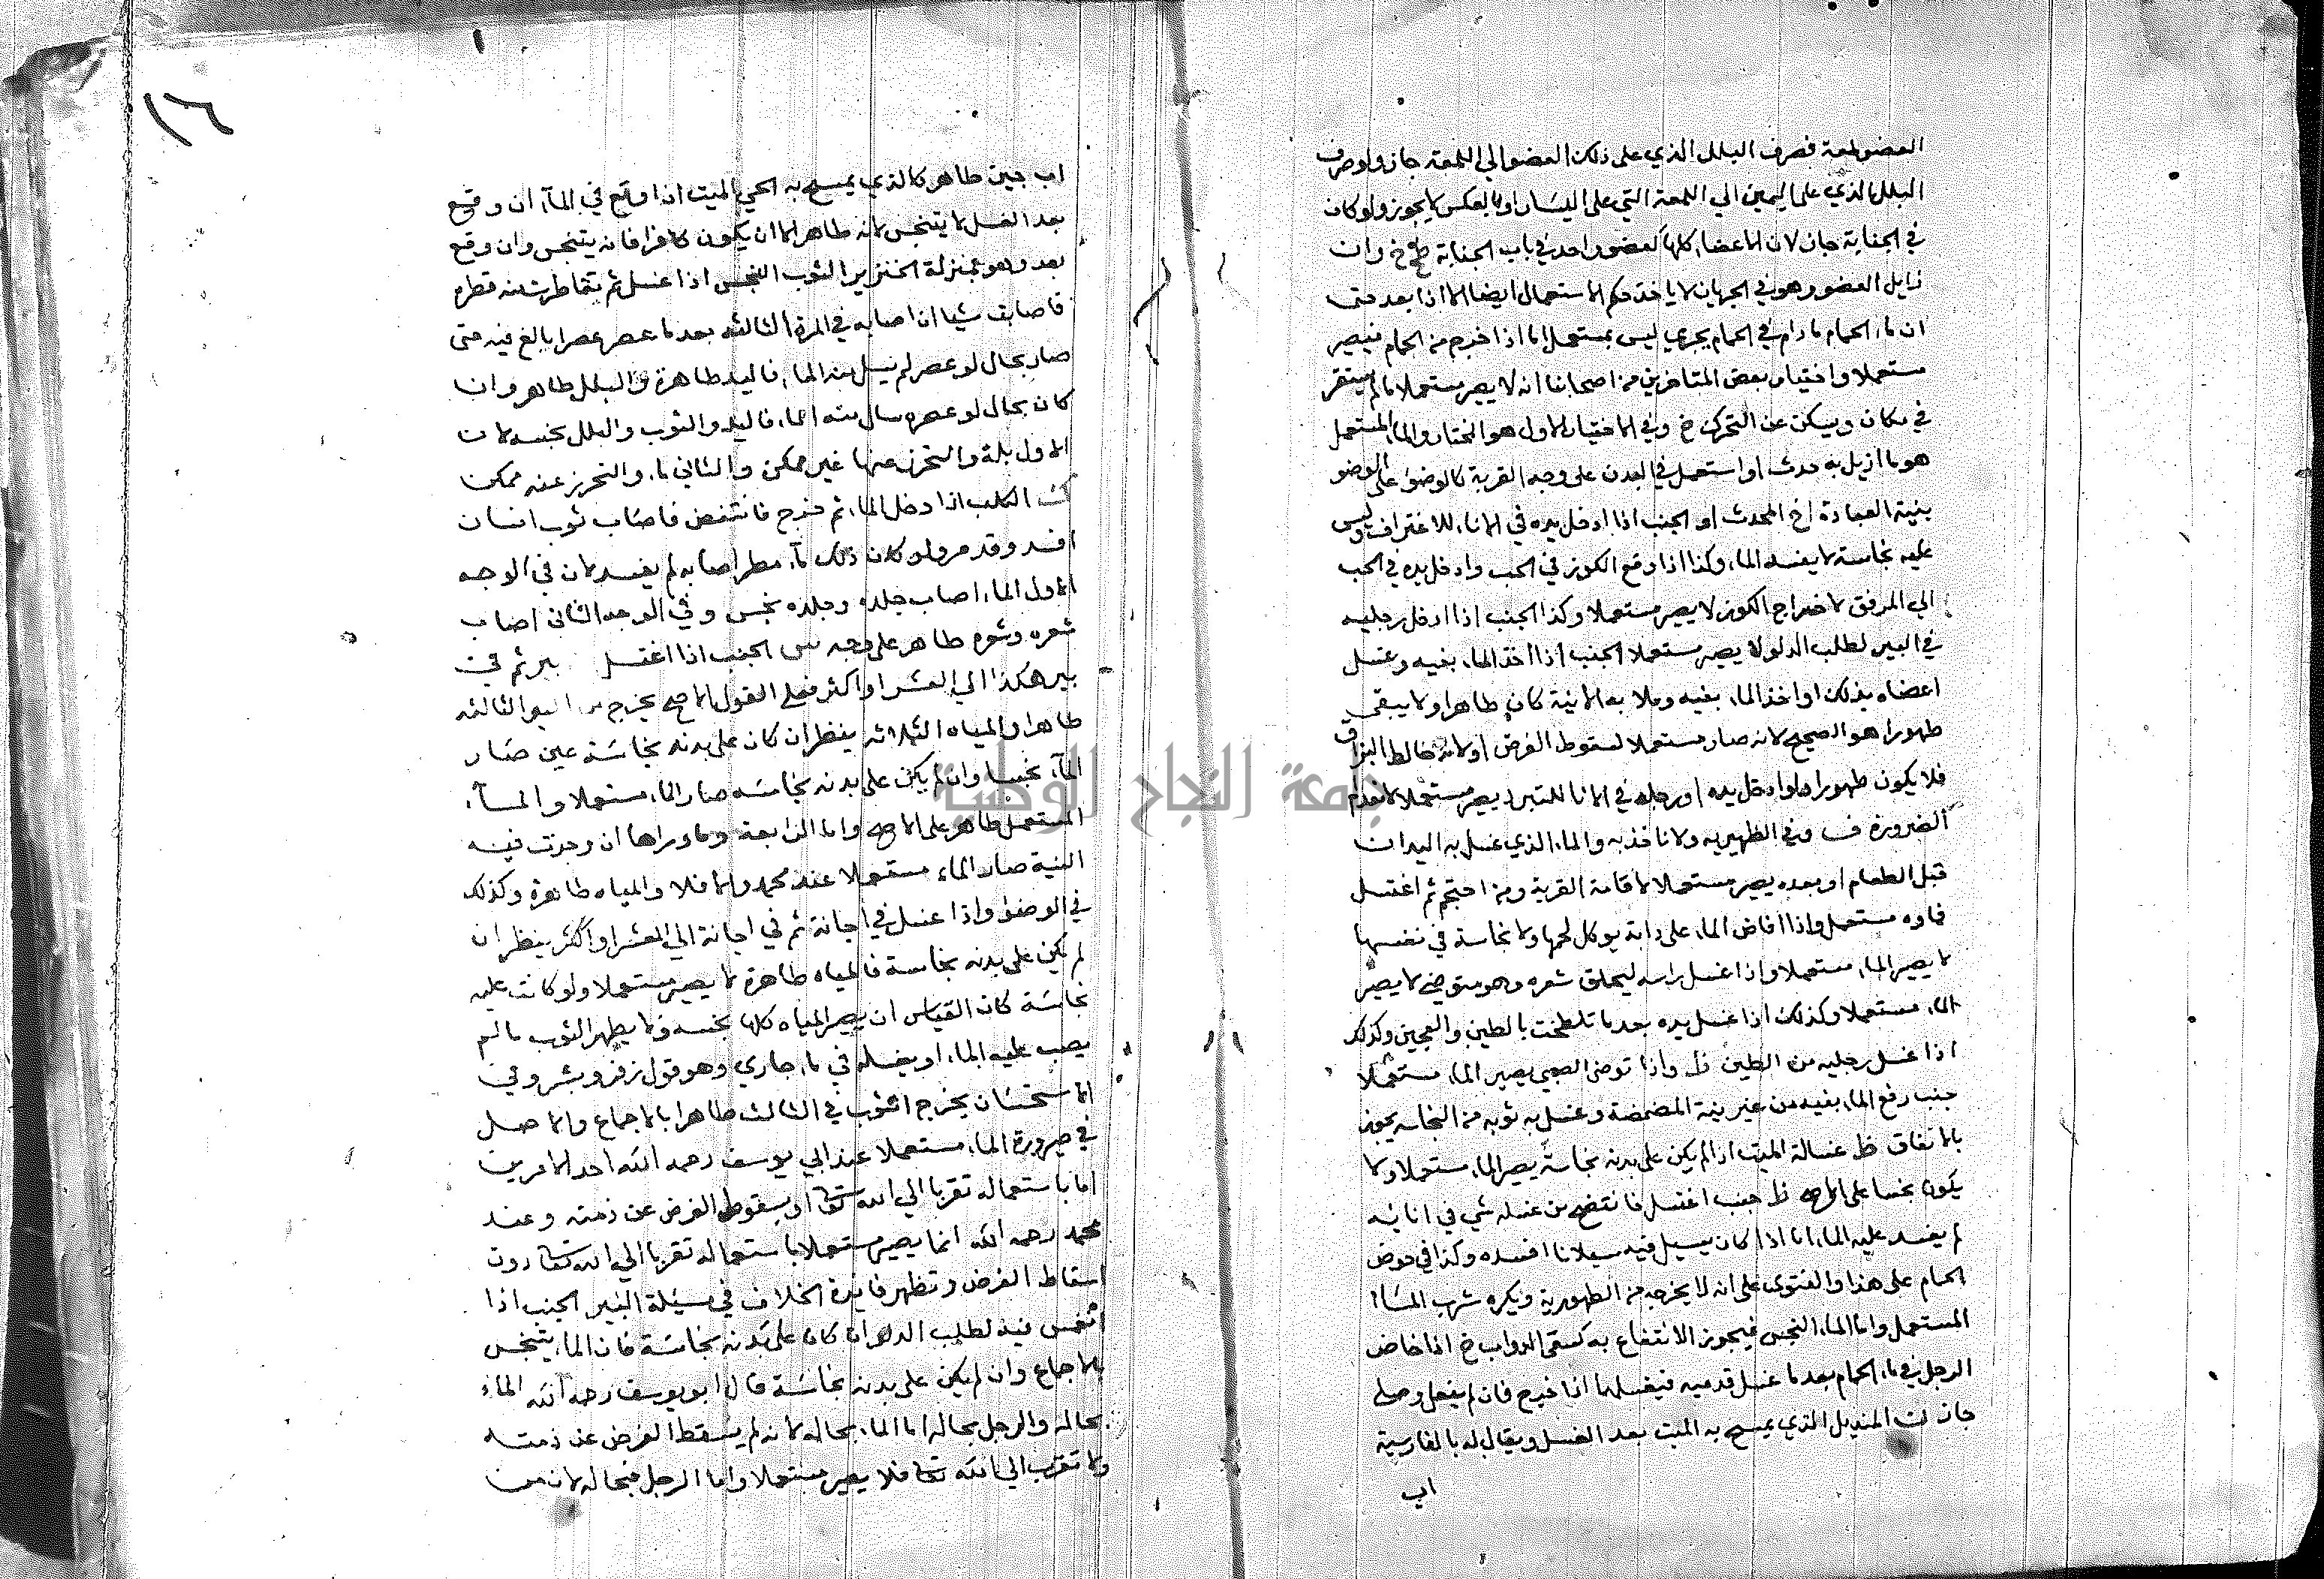 العضو لمعة فصرف البلل الذي على ذلك العضو الي اللمعة جاز ولو صرف
البلل الذي على اليمين الي اللمعة التي على اليسار او بالعكس لا يجوز ولو كان
في الجنابة جاز لان الاعضا كلها كعضو واحد في باب الجنابة خ وان
زايل العضو وهو في الجريان لا ياخذ حكم الاستعمال ايضا الا اذا بعد حتى
ان ماء الحمام مادام في الحمام يجري ليس بمستعمل اما اذا خرج من الحمام فيصير
مستعملا واختيار بعض المتاخرين من اصحابنا انه لا يصير مستعملا مالم يستقر
في مكان ويسكن عن التحرك خ وفي الاختيار الاول هو المختار والماء المستعمل
هو ما ازيل به حدث او استعمل في البدن على وجه القربة كالوضوء على الوضو
بنية العبادة خ المحدث او الجنب اذا ادخل يده في الاناء للاغتراف وليس
عليه نجاسة لا يفسد الماء وكذا اذا وقع الكوز في الحب وادخل يده في الحب
الي المرفق لاخراج الكوز لا يصير مستعملا وكذا الجنب اذا ادخل رجليه
في البير لطلب الدلو لا يصير مستعملا الجنب اذا اخذ الماء بفيه وغسل
اعضاه بذلك او اخذ الماء بفيه وملا به الانية كان طاهرا ولا يبقى
طهورا هو الصحيح لانه صار مستعملا لسقوط الفرض او لانه خالط البزاق
فلا يكون طهورا ولو ادخل يده او رجله في الانا للتبرد يصير مستعملا لانعدام
الضرورة ف وفي الظهيريه ولا ناخذ به والماء الذي غسل به اليدان
قبل الطعام او بعده يصير مستعملا لاقامة القربة ومن احتجم ثم اغتسل
فماوه مستعمل واذا افاض الماء على دابة يوكل لحمها ولا نجاسة في نفسها
لا يصير الماء مستعملا واذا غسل راسه ليحلق شعره وهو متوضي لا يصير
الماء مستعملا وكذلك اذا غسل يده بعد ما تلطخت بالطين والعجين وكذلك
اذا غسل رجليه من الطين ظ واذا توضى الصبي يصير الماء مستعملا
جنب رفع الماء بفيه من غير نية المضمضة وغسل به ثوبه من النجاسه يجوز
بالاتفاق ظ غسالة الميت اذا لم يكن على بدنه نجاسة يصير الماء مستعملا ولا
يكون نجسا على الاصح ظ جنب اغتسل فانتضح من غسله شي في انايه
لم يفسد عليه الماء اما اذا كان يسيل فيه سيلانا افسده وكذا في حوض
الحمام على هذا والفتوى على انه لا يخرجه من الطهورية ويكره شرب الماء
المستعمل واما الماء النجس فيجوز الانتفاع به كسقي الدواب خ اذا خاض
الرجل في ماء الحمام بعد ما غسل قدميه فيغسلهما اذا خرج فان لم يفعل وصلى
جاز المنديل الذي يمسح به الميت بعد الغسل ويقال له بالفارسية
اب
١٦
اب جين طاهر كالذي يمسح به الحي الميت اذا وقع في الماء ان وقع
بعد الغسل لا يتنجس لانه طاهر الا ان يكون كافرا فانه يتنجس وان وقع
بعده وهو بمنزلة الخنزير الثوب النجس اذا غسل ثم تقاطرت منه قطرة
فاصابت شيا ان اصابه في المرة الثالثه بعد ما عصر عصرا بالغ فيه حتى
صار بحال لو عصر لم يسل منه الماء فاليد طاهرة والبلل طاهر وان
كان بحال لو عصره سال منه الماء فاليد والثوب والبلل نجسه لان
الاول بلة والتحرز عنها غير ممكن والثاني ماء والتحرز عنه ممكن
الكلب اذا دخل الماء ثم خرج فانتفض فاصاب ثوب انسان
افسد وقد مر ولو كان ذلك ماء مطر اصابه لم يفسد لان في الوجه
الاول الماء اصاب جلده وجلده نجس وفي الوجه الثاني اصاب
شعره وشعره طاهر على وجه الجنب اذا اغتسل بير ثم في
بير هكذا الي العشر او اكثر فعلى القول الاصح يخرج من البير الثالثه
طاهرا والمياه الثلاثه ينظر ان كان على بدنه نجاسة عين صار
الماء نجسا وان لم يكن على بدنه نجاسه صار الماء مستعملا والماء
المستعمل طاهر على الاصح واما الرابعة وما وراها ان وجدت فيه
النية صار الماء مستعملا عند محمد والا فلا والمياه طاهرة وكذلك
في الوضوء واذا غسل في اجانة ثم في اجانة الي العشر او اكثر ينظر ان
لم يكن على بدنه نجاسة فالمياه طاهرة لا يصير مستعملا ولو كانت عليه
نجاسة كان القياس ان يصير المياه كلها نجسه ولا يطهر الثوب مالم
يصب عليه الماء او يغسله في ماء جاري وهو قول زفر وبشر وفي
الاستحسان يخرج الثوب في الثالث طاهرا بالاجماع والاصل
في صيرورة الماء مستعملا عند ابي يوسف رحمه الله احد الامرين
اما باستعماله تقربا الي الله تعالى او بسقوط الفرض عن ذمته وعند
محمد رحمه الله انما يصير مستعملا باستعماله تقربا الي الله تعالى دون
اسقاط الفرض وتظهر فايدة الخلاف في مسيلة البير الجنب اذا
انغمس فيه لطلب الدلو ان كان على بدنه نجاسة فان الماء يتنجس
بالاجماع وان لم يكن على بدنه نجاسة قال ابو يوسف رحمه الله الماء
بحاله والرجل بحاله اما الماء بحاله لانه لم يسقط الفرض عن ذمته
ولا تقرب الي الله تعالى فلا يصير مستعملا واما الرجل فبحاله لان من
جامعة النجاح الوطنية